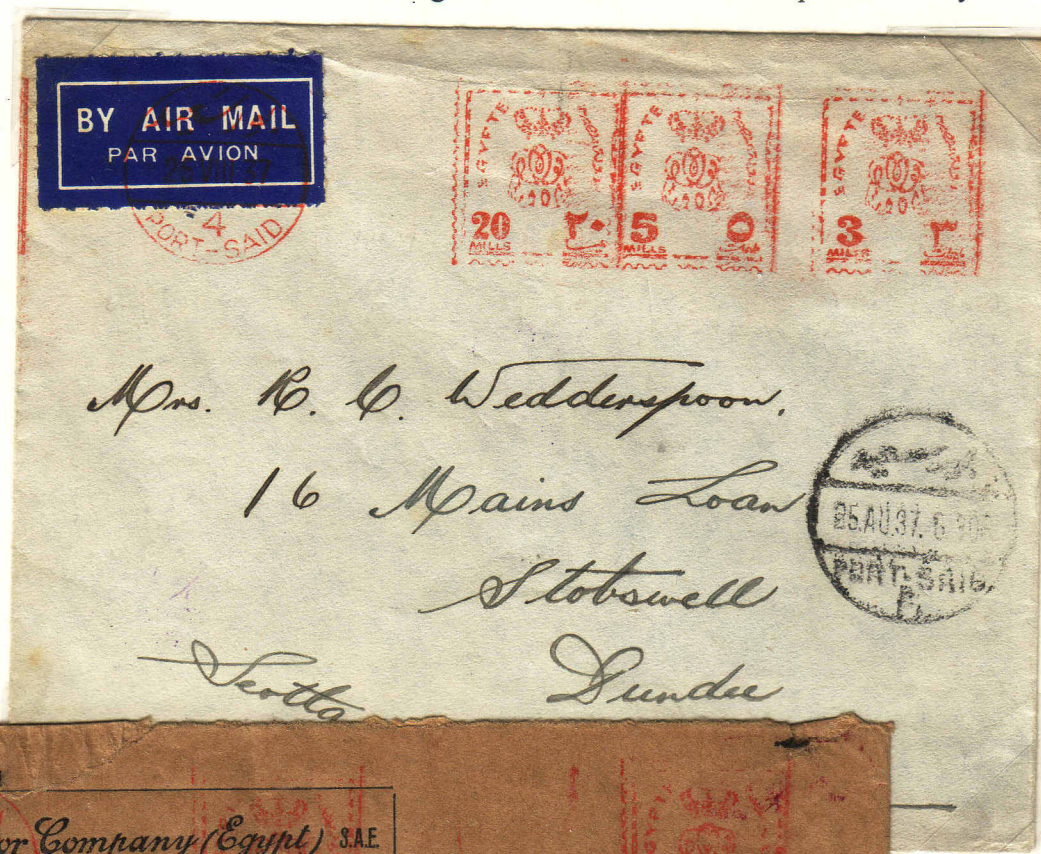 BY AIR MAIL
PAR AVION
4
PORT-SAID
EGYPTE
20 ٢٠
MILLS
EGYPTE
5 ٥
MILLS
EGYPTE
3 ٣
MILLS
Mrs. R. C. Wedderspoon.
16 Mains Loan
Stobswell
Dundee
Scotla
25.AU.37. 6
PORT-SAID.
or Company (Egypt) S.A.E.
EGYPTE